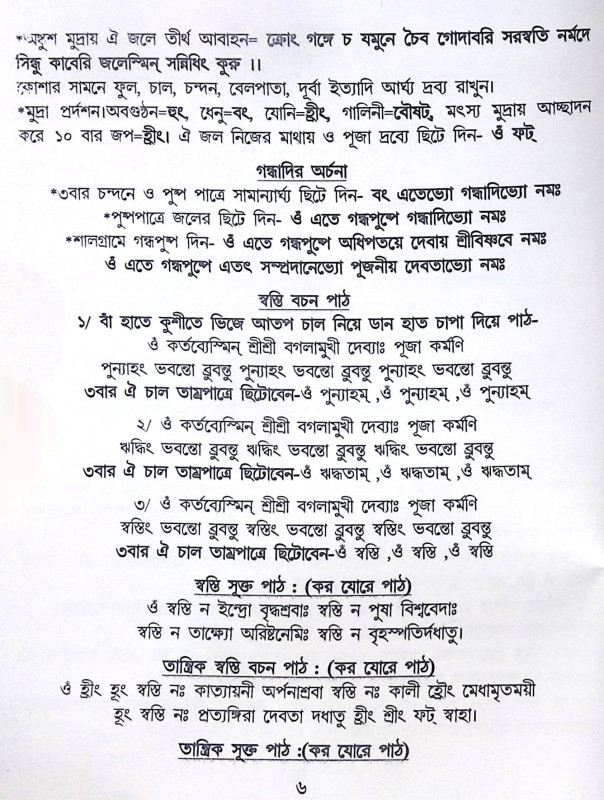 *অঙ্কুশ মুদ্রায় ঐ জলে তীর্থ আবাহন= ক্রোং গঙ্গে চ যমুনে চৈব গোদাবরি সরস্বতি নর্মদে
সিন্ধু কাবেরি জলেস্মিন্ সন্নিধিং কুরু ।।
কোশার সামনে ফুল, চাল, চন্দন, বেলপাতা, দূর্বা ইত্যাদি আর্ঘ্য দ্রব্য রাখুন।
*মুদ্রা প্রর্দশন।অবগুণ্ঠন=হুং, ধেনু=বং, যোনি=হ্রীং, গালিনী=বৌষট্, মৎস্য মুদ্রায় আচ্ছাদন
করে ১০ বার জপ=হ্রীং। ঐ জল নিজের মাথায় ও পূজা দ্রব্যে ছিটে দিন- ওঁ ফট্
গন্ধাদির অর্চনা
*৩বার চন্দনে ও পুষ্প পাত্রে সামান্যার্ঘ্য ছিটে দিন- বং এতেভ্যো গন্ধাদিভ্যো নমঃ
*পুষ্পপাত্রে জলের ছিটে দিন- ওঁ এতে গন্ধপুষ্পে গন্ধাদিভ্যো নমঃ
*শালগ্রামে গন্ধপুষ্প দিন- ওঁ এতে গন্ধপুষ্পে অধিপতয়ে দেবায় শ্রীবিষ্ণবে নমঃ
ওঁ এতে গন্ধপুষ্পে এতৎ সম্প্রদানেভ্যো পূজনীয় দেবতাভ্যো নমঃ
স্বস্তি বচন পাঠ
১/ বাঁ হাতে কুশীতে ভিজে আতপ চাল নিয়ে ডান হাত চাপা দিয়ে পাঠ-
ওঁ কর্তব্যেস্মিন্ শ্রীশ্রী বগলামুখী দেব্যাঃ পূজা কর্মণি
পুন্যাহং ভবন্তো ব্রুবন্তু পুন্যাহং ভবন্তো ব্রুবন্তু পুন্যাহং ভবন্তো ব্রুবন্তু
৩বার ঐ চাল তাম্রপাত্রে ছিটোবেন-ওঁ পুন্যাহম্ ,ওঁ পুন্যাহম্ ,ওঁ পুন্যাহম্
২/ ওঁ কর্তব্যেস্মিন্ শ্রীশ্রী বগলামুখী দেব্যাঃ পূজা কর্মণি
ঋদ্ধিং ভবন্তো ব্রুবন্তু ঋদ্ধিং ভবন্তো ব্রুবন্তু ঋদ্ধিং ভবন্তো ব্রুবন্তু
৩বার ঐ চাল তাম্রপাত্রে ছিটোবেন-ওঁ ঋদ্ধতাম্ ,ওঁ ঋদ্ধতাম্ ,ওঁ ঋদ্ধতাম্
৩/ ওঁ কর্তব্যেস্মিন্ শ্রীশ্রী বগলামুখী দেব্যাঃ পূজা কর্মণি
স্বস্তিং ভবন্তো ব্রুবন্তু স্বস্তিং ভবন্তো ব্রুবন্তু স্বস্তিং ভবন্তো ব্রুবন্তু
৩বার ঐ চাল তাম্রপাত্রে ছিটোবেন-ওঁ স্বস্তি ,ওঁ স্বস্তি ,ওঁ স্বস্তি
স্বস্তি সুক্ত পাঠ : (কর যোরে পাঠ)
ওঁ স্বস্তি ন ইন্দ্রো বৃদ্ধশ্রবাঃ স্বস্তি ন পুষা বিশ্ববেদাঃ
স্বস্তি ন তাক্ষ্যো অরিষ্টনেমিঃ স্বস্তি ন বৃহস্পতির্দধাতু।
তান্ত্রিক স্বস্তি বচন পাঠ : (কর যোরে পাঠ)
ওঁ হ্রীং হূং স্বস্তি নঃ কাত্যায়নী অর্পনাশ্রবা স্বস্তি নঃ কালী হ্রৌং মেধামৃতময়ী
হূং স্বস্তি নঃ প্রত্যঙ্গিরা দেবতা দধাতু হ্রীং শ্রীং ফট্ স্বাহা।
তান্ত্রিক সূক্ত পাঠ :(কর যোরে পাঠ)
৬